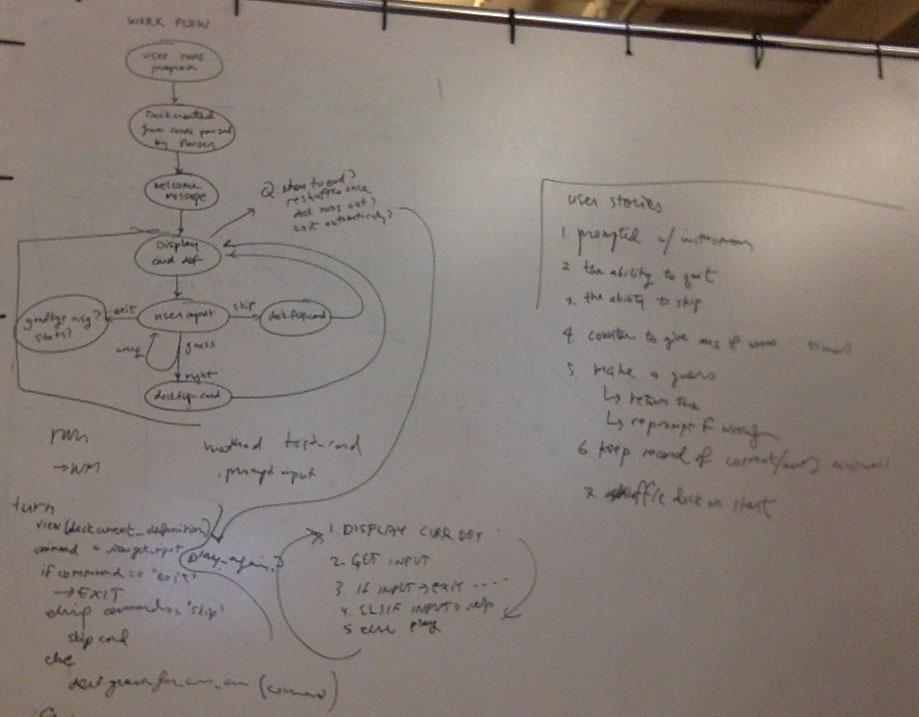 WORK FLOW
user runs
program
Deck created
from cards parsed
by Parser
Welcome
message
Q. When to end?
reshuffle once
deck runs out?
exit automatically?
Display
card def
goodbye msg?
stats?
exit
user input
skip
deck.flipcard
wrong
guess
right
deck.flipcard
run
→ WM
method test-card
. prompt input
turn
view(deck.current_definition)
command =
if command == "exit"
→ EXIT
command = "skip"
skip card
else
(command)
Play_again?
1. DISPLAY CURR DEF
2. GET INPUT
3. IF INPUT → EXIT ....
4. ELSIF INPUT → skip
5. else play
user stories
1. prompted w/ instructions
2 the ability to quit
3. the ability to skip
4. counter to give ans if wrong times
5. make a guess
↳ return true
↳ reprompt if wrong
6. keep record of correct/wrong answers
7. shuffle deck on start